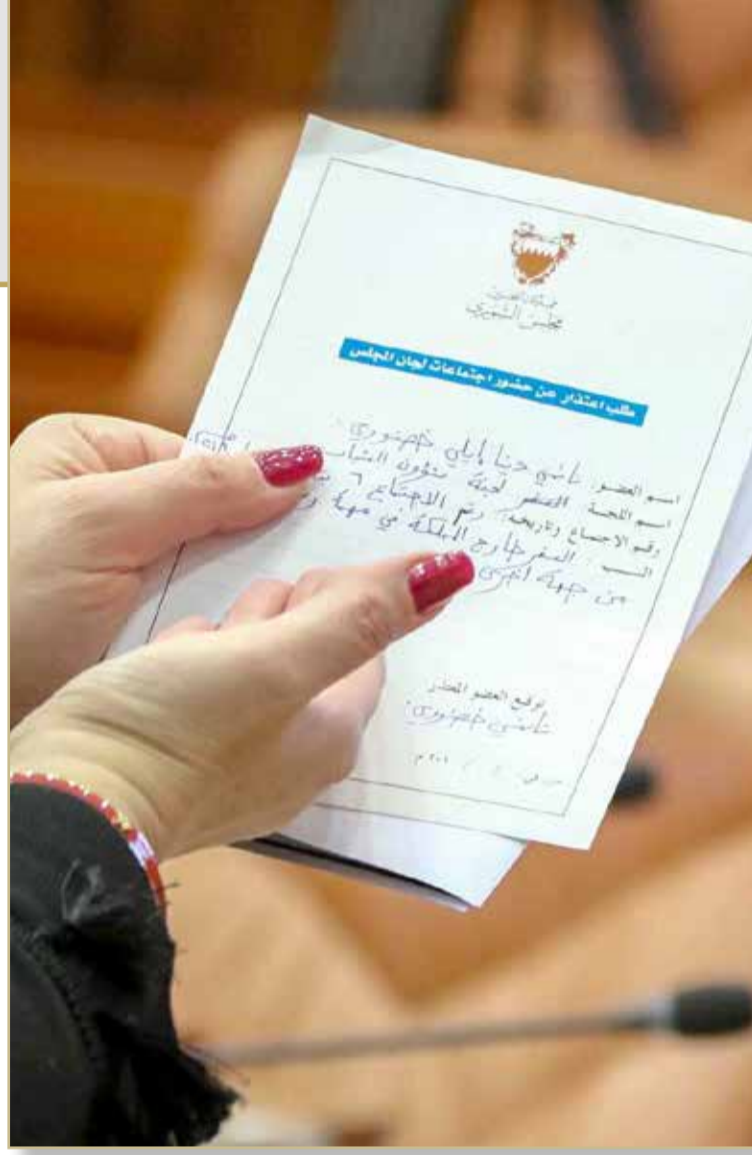 مملكة البحرين
مجلس الشورى
طلب اعتذار عن حضور اجتماعات لجان المجلس
اسم العضو: نانسي دينا إيلي خضوري
اسم اللجنة: لجنة شؤون الشباب
رقم الاجتماع وتاريخه: رقم الاجتماع ٦
السبب: السفر خارج المملكة في مهمة
من جهة أخرى
توقيع العضو المعتذر
نانسي خضوري